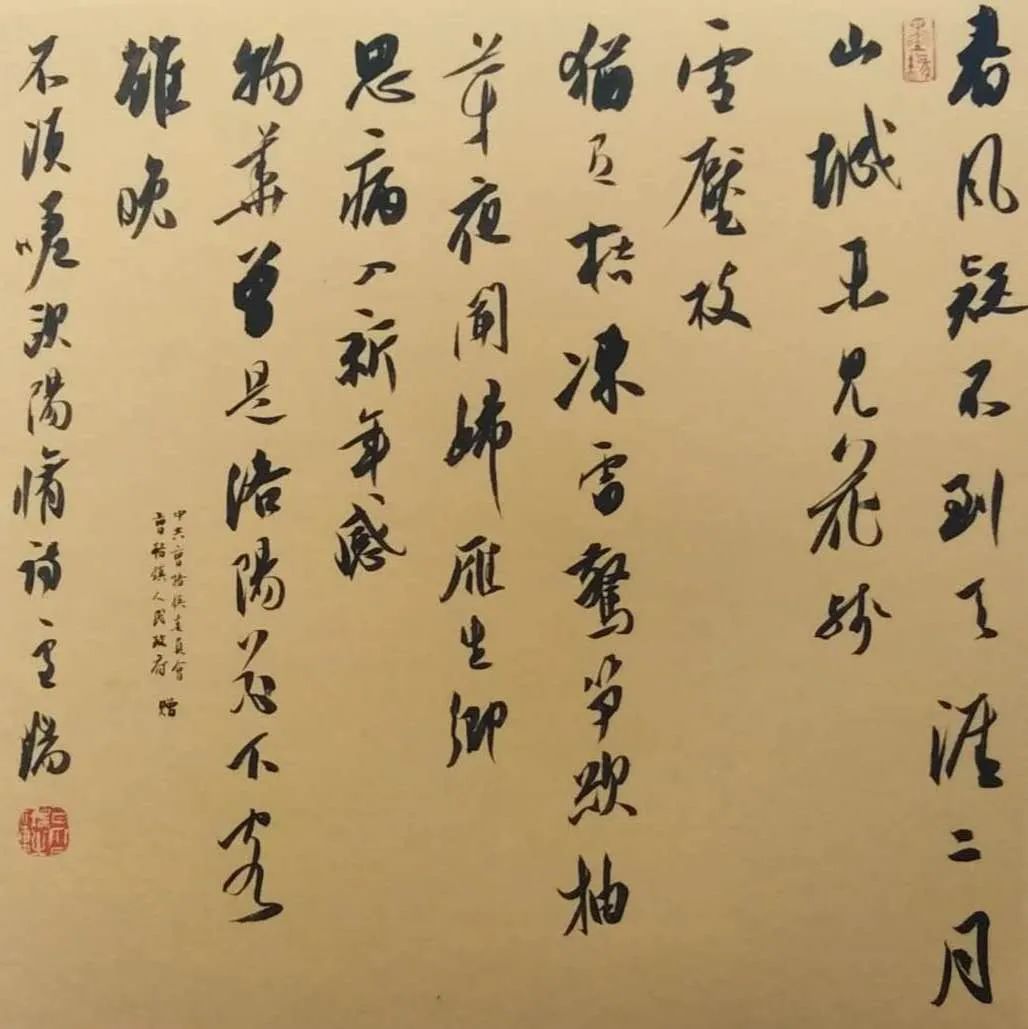 春風疑不到天涯二月
山城未見花殘
雪壓枝
猶有桔凍雷驚筍欲抽
芽夜聞歸雁生鄉
思病入新年感
物華曾是洛陽花下客
雖晚
中共曹路鎮委員會
曹路鎮人民政府 贈
不須嗟歐陽脩詩